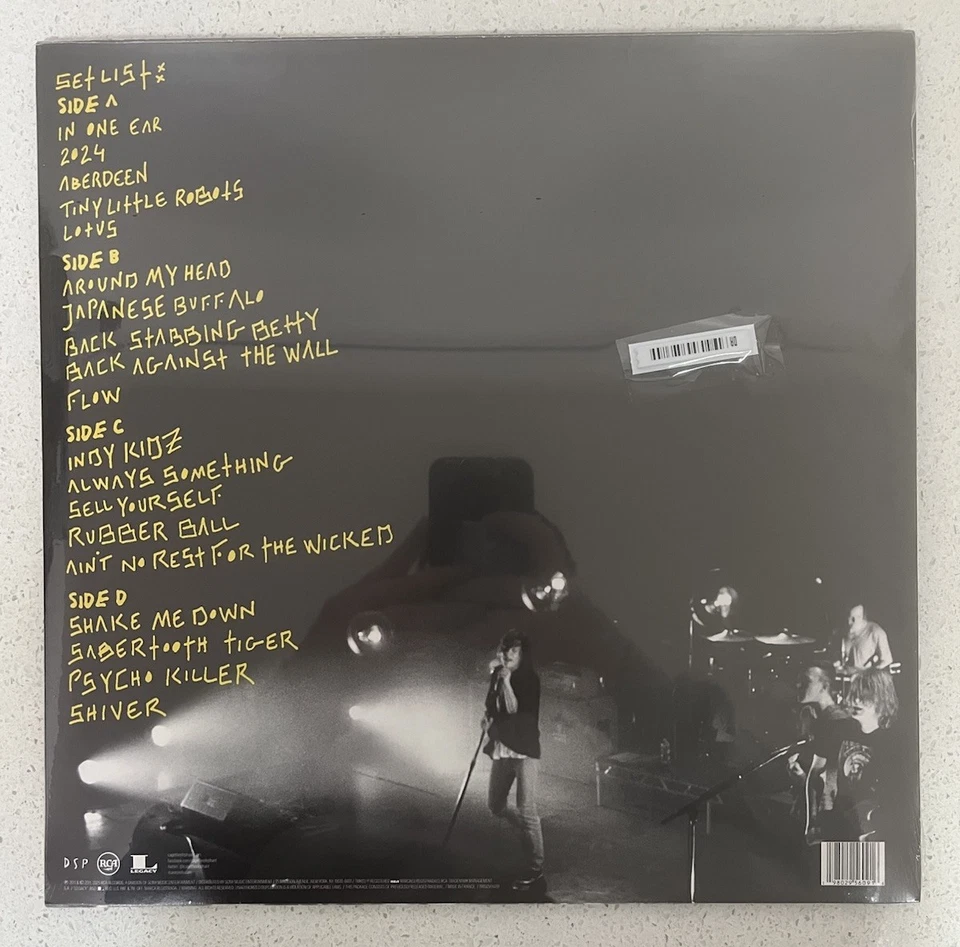 SETLIST:
SIDE A
IN ONE EAR
2024
ABERDEEN
TINY LITTLE ROBOTS
LOTUS
SIDE B
AROUND MY HEAD
JAPANESE BUFFALO
BACK STABBING BETTY
BACK AGAINST THE WALL
FLOW
SIDE C
INDY KIDZ
ALWAYS SOMETHING
SELL YOURSELF
RUBBER BALL
AIN'T NO REST FOR THE WICKED
SIDE D
SHAKE ME DOWN
SABERTOOTH TIGER
PSYCHO KILLER
SHIVER
DSP RCA L LEGACY